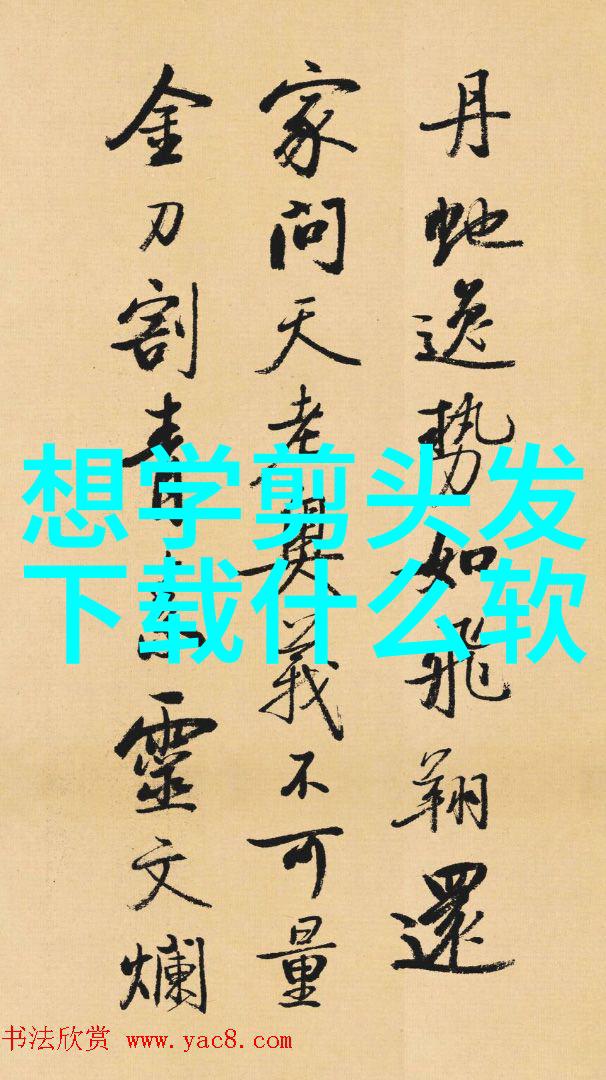 丹虵逸勢如飛翔還
家問天老奥義不可量
金刀割青靈文爛
想学剪头发
下载什么软
书法欣赏 www.yac8.com